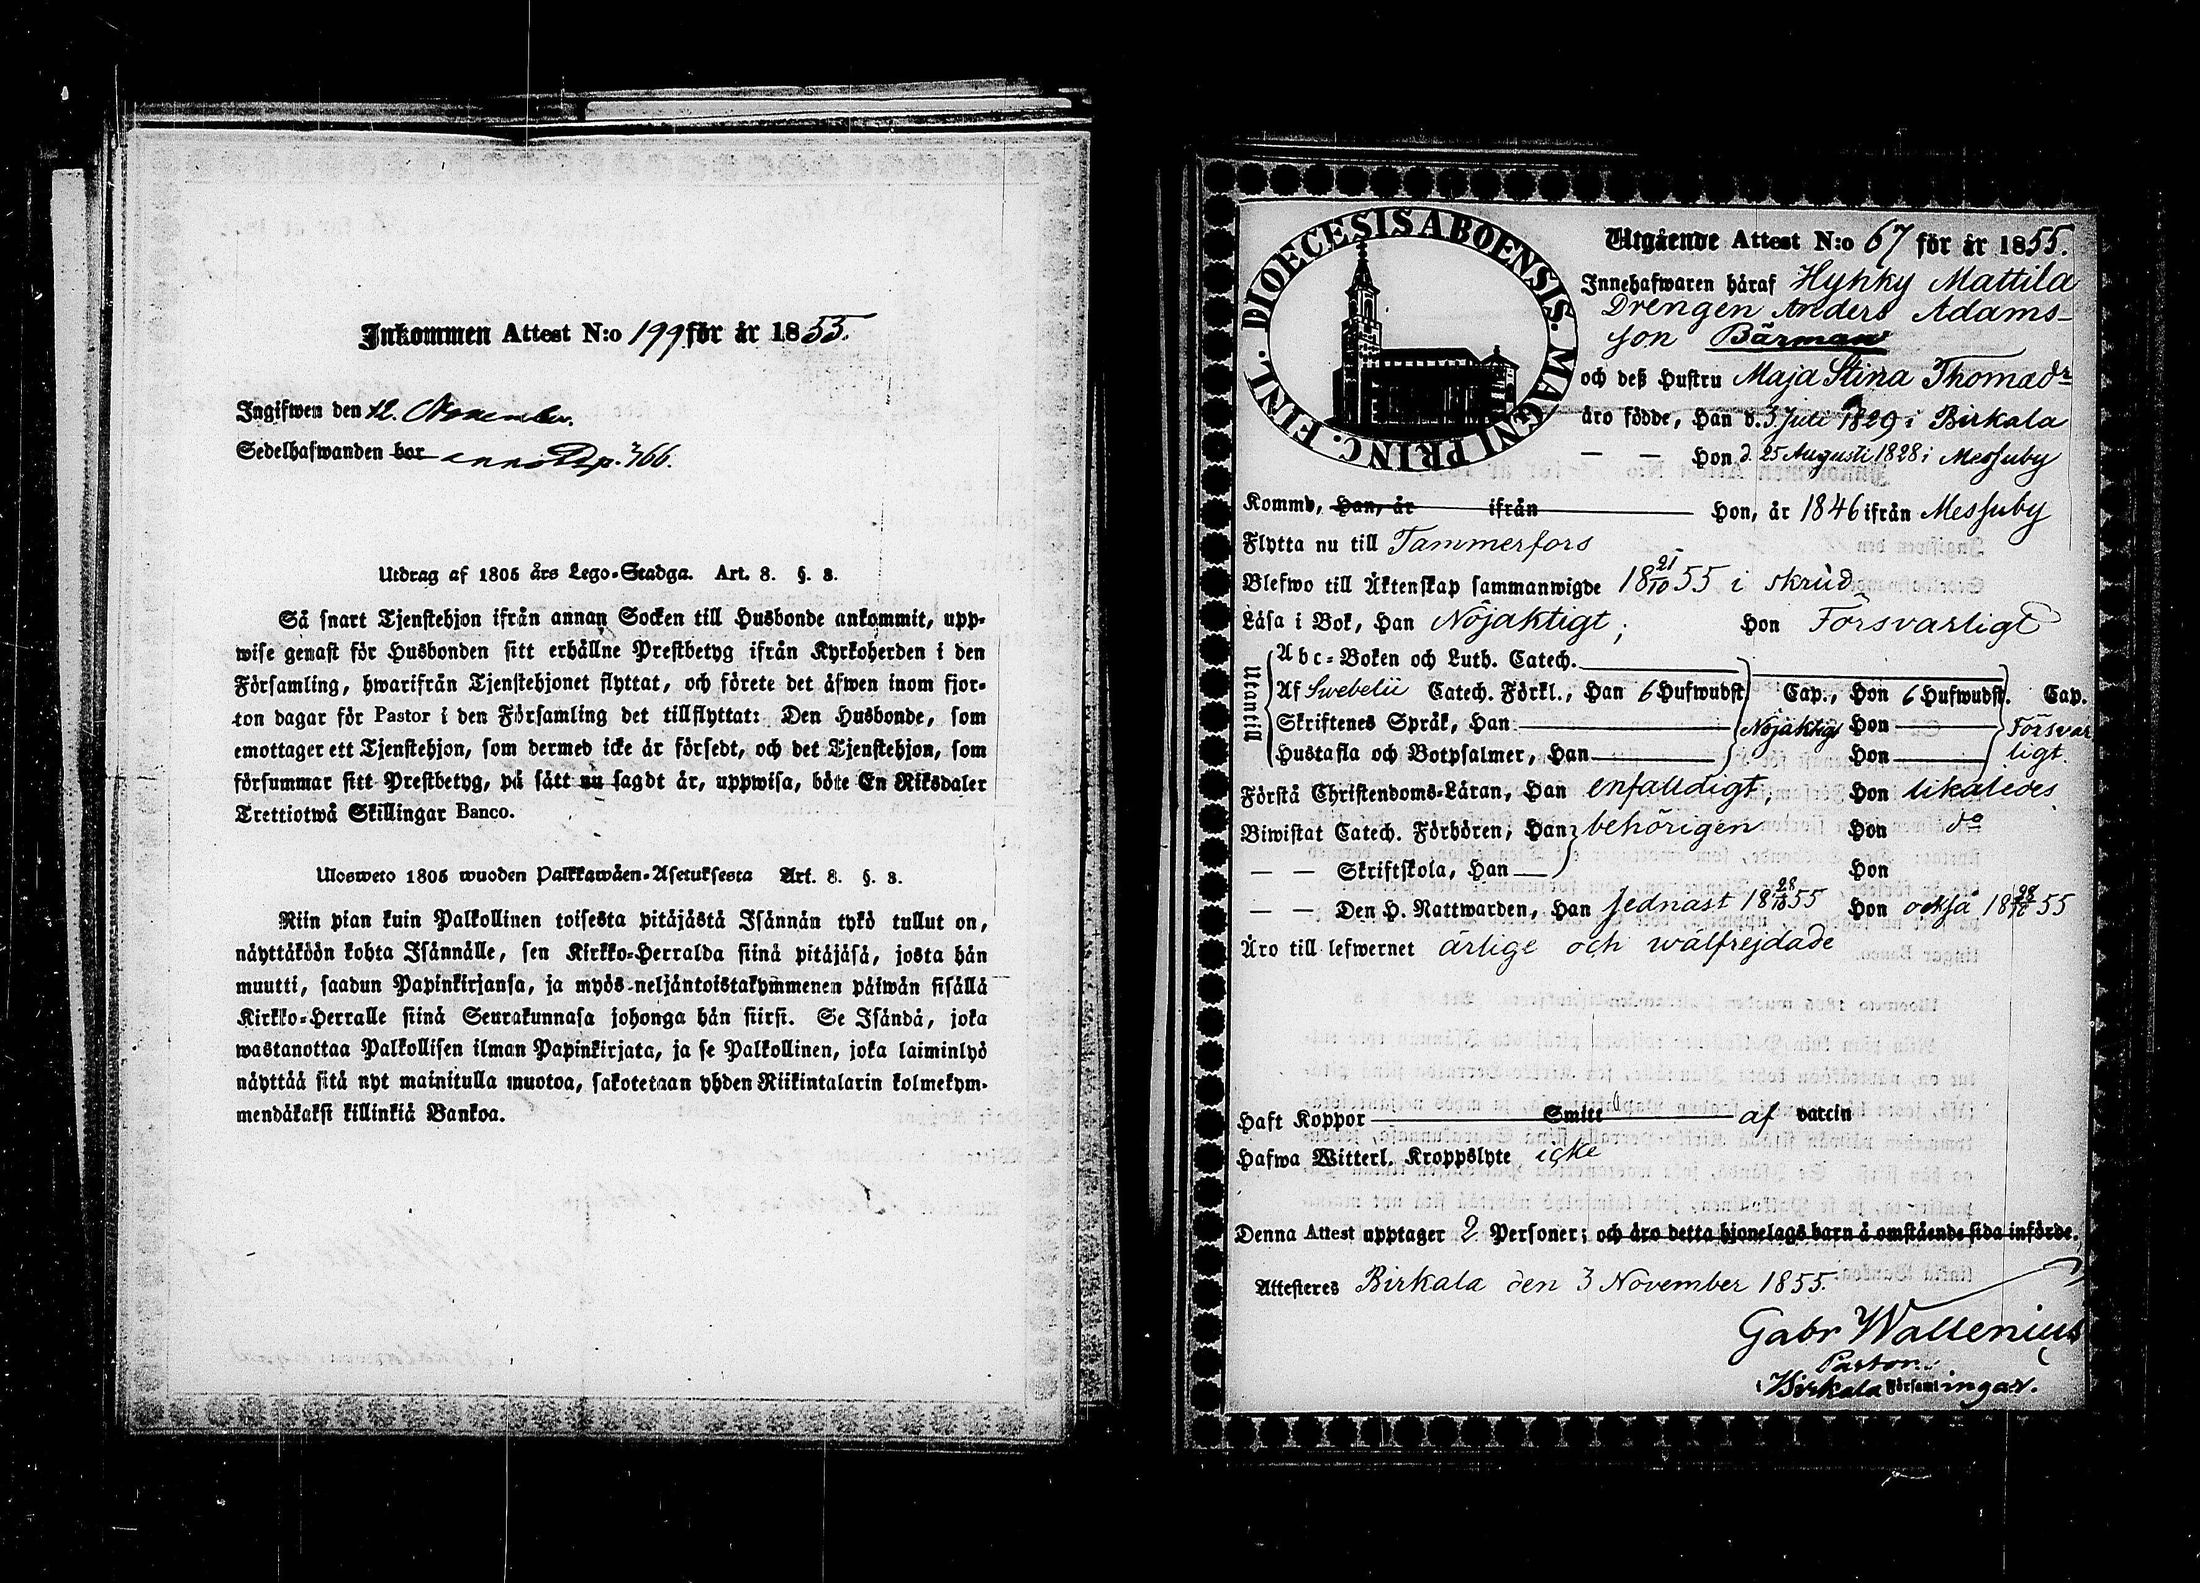 Inkommen Attest N:o 199 för år 1855.
Ingifwen den 12. November.
Sedelhafwanden bor p. 366.
Utdrag af 1805 års Lego-Stadga. Art. 8. §. 8.
Så snart Tjenstehjon ifrån annan Socken till Husbonde ankommit, upp-
wise genast för Husbonden sitt erhållne Prestbetyg ifrån Kyrkoherden i den
Församling, hwarifrån Tjenstehjonet flyttat, och förete det äfwen inom fjor-
ton dagar för Pastor i den Församling det tillflyttat: Den Husbonde, som
emottager ett Tjenstehjon, som dermed icke är försedt, och det Tjenstehjon, som
försummar sitt Prestbetyg, på sätt nu sagdt är, uppwisa, böte En Riksdaler
Trettiotwå Skillingar Banco.
Ulosweto 1805 wuoden Palkkawäen-Asetuksesta Art. 8. §. 8.
Niin pian kuin Palkollinen toisesta pitäjästä Isännän tykö tullut on,
näyttäköön kohta Isännälle, sen Kirkko-Herralda siinä pitäjäsä, josta hän
muutti, saadun Papinkirjansa, ja myös neljäntoistakymmenen päiwän sisällä
Kirkko-Herralle siinä Seurakunnasa johonga hän siirsi. Se Isändä, joka
wastanottaa Palkollisen ilman Papinkirjata, ja se Palkollinen, joka laiminlyö
näyttää sitä nyt mainitulla muotoa, sakotetaan yhden Riikintalarin kolmekym-
mendäkaksi killinkiä Bankoa.
DIOECESIS ABOENSIS. MAGNI PRINC. FINL.
Utgående Attest N:o 67 för år 1855.
Innehafwaren häraf Hyhky Mattila
Drengen Anders Adams-
son Bärman
och deß Hustru Maja Stina Thomadr
äro födde, Han d. 3 Juli 1829 i Birkala
— — Hon d. 25 Augusti 1828 i Messuby
Komme, Han, år ifrån Hon, år 1846 ifrån Messuby
Flytta nu till Tammerfors
Blefwo till Äktenskap sammanwigde 18 21/10 55 i skrud
Läsa i Bok, Han Nöjaktigt; Hon Försvarligt
Utantill
Abc-Boken och Luth. Catech.
Af Swebelii Catech. Förkl., Han 6 Hufwudst. Cap., Hon 6 Hufwudst. Cap.
Skriftenes Språk, Han Nöjaktigt Hon Försvar
Hustafla och Botpsalmer, Han Hon ligt.
Förstå Christendoms-Läran, Han enfaldigt, Hon likaledes
Biwistat Catech. Förhören, Han behörigen Hon do
— — Skriftskola, Han Hon
— — Den H. Nattwarden, Han sednast 18 28/10 55 Hon också 18 28/10 55
Äro till lefwernet ärlige och wälfrejdade
Haft Koppor Smitta af vaccin
Hafwa Witterl. Kroppslyte icke
Denna Attest upptager 2 Personer; och äro detta hjonelags barn å omstående sida införde.
Attesteres Birkala den 3 November 1855.
Gabr Wallenius
Pastor
i Birkala Församlingar.